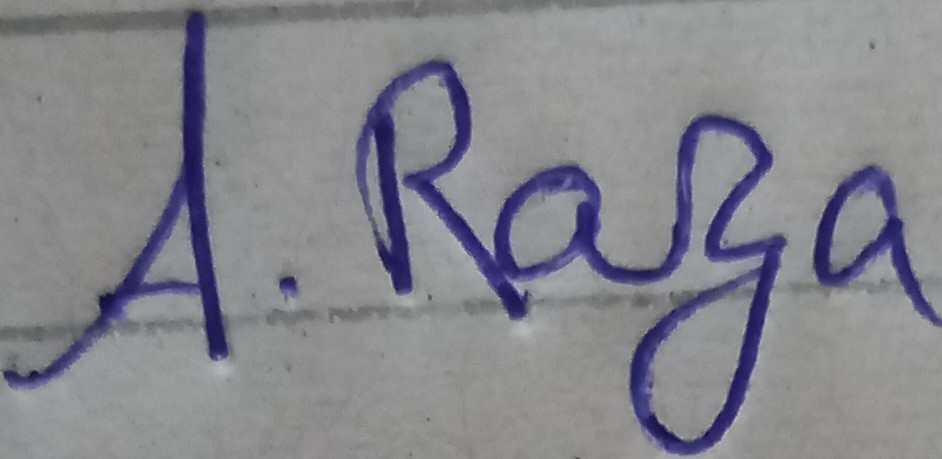 A. Raza